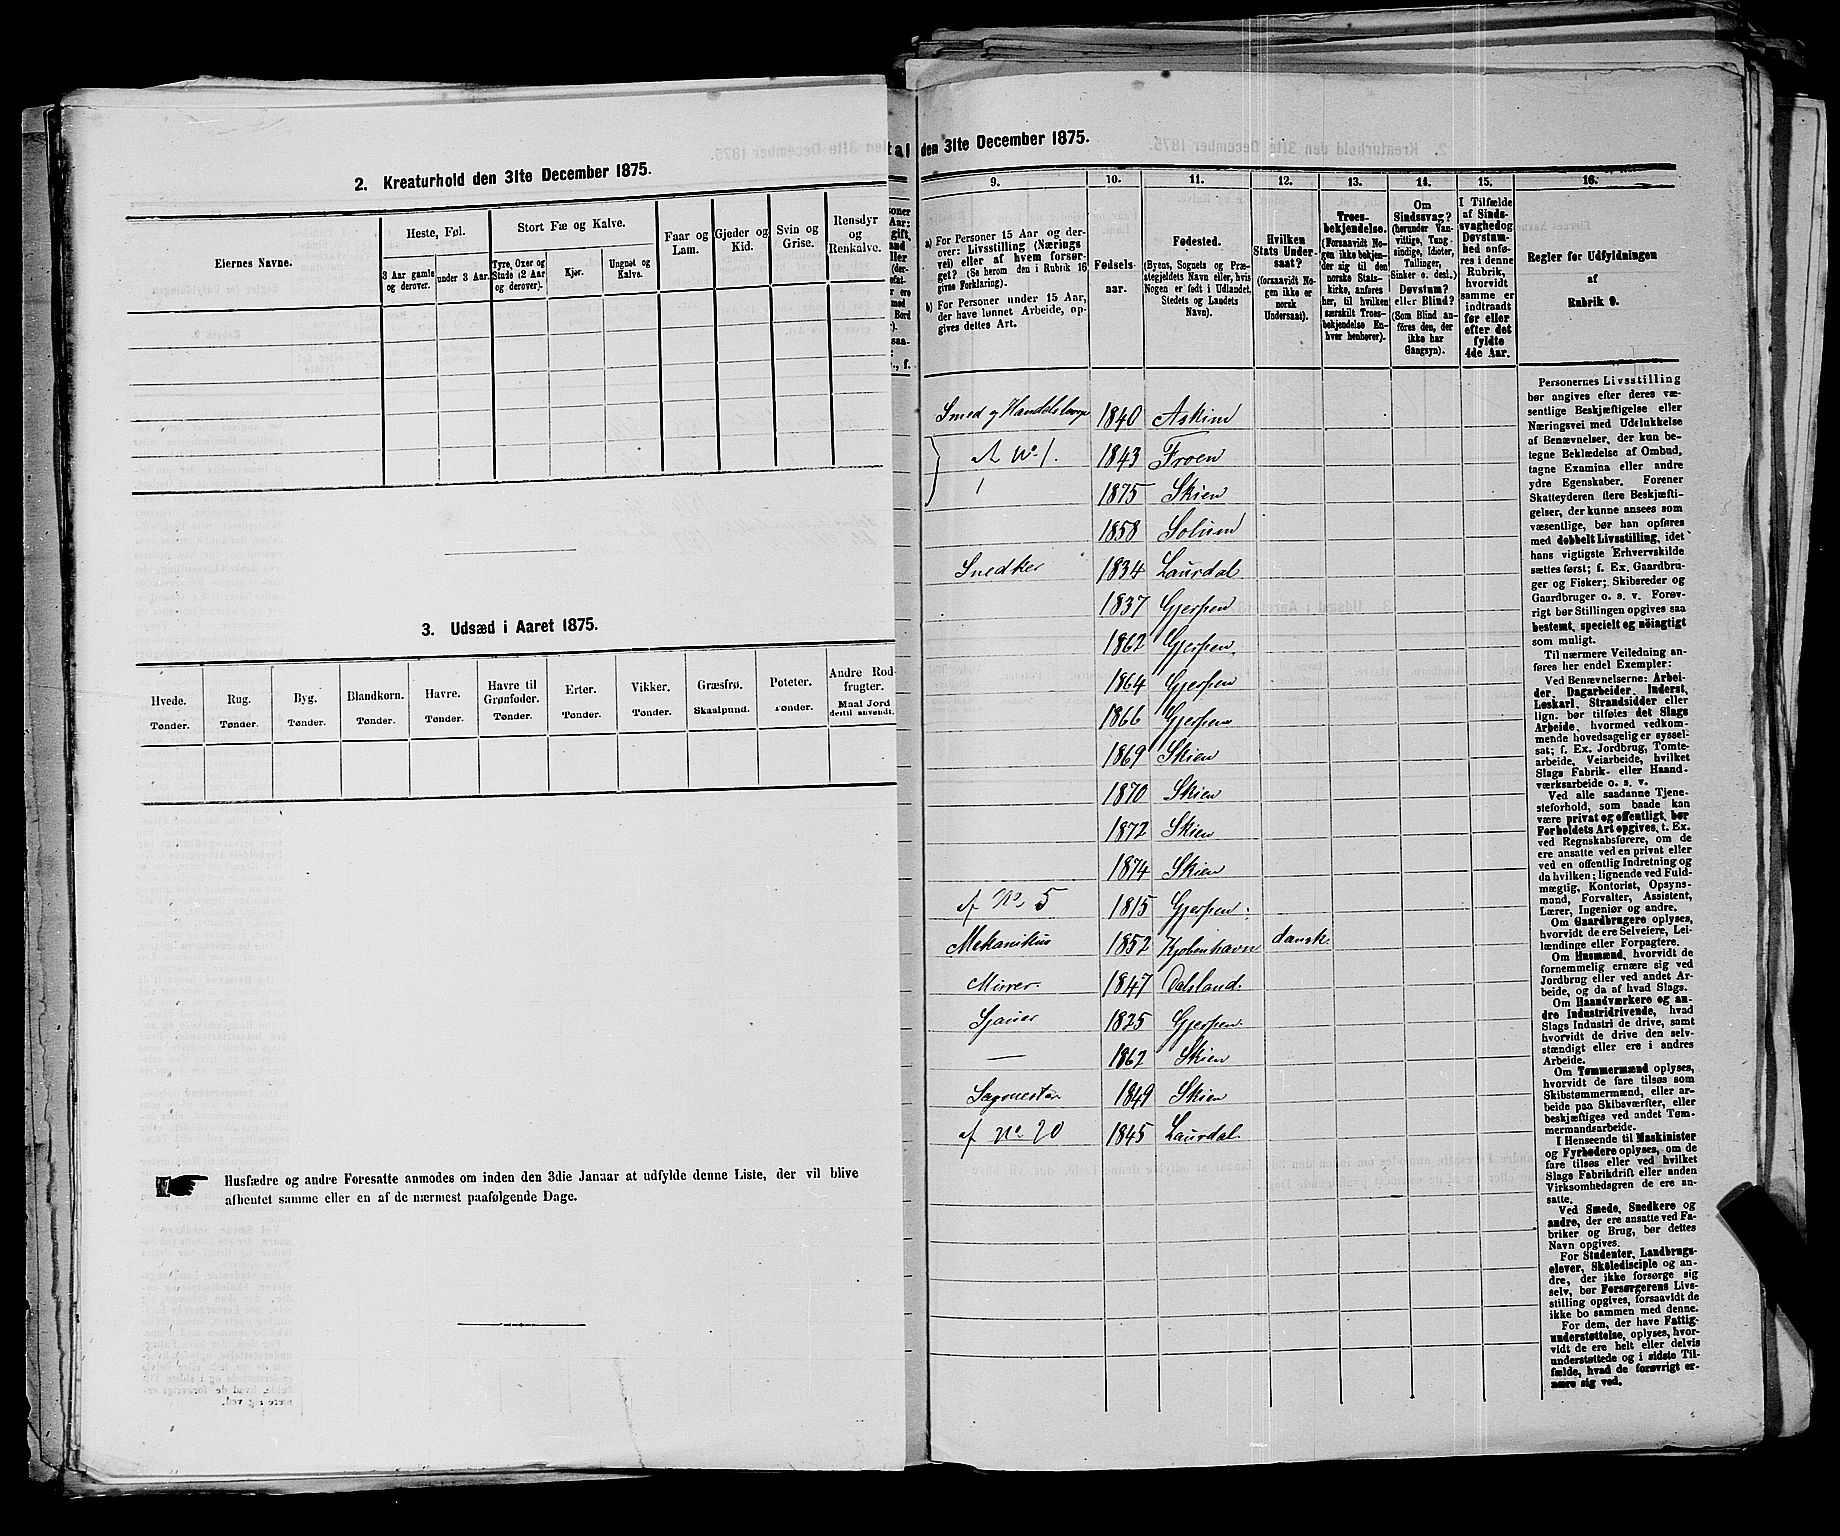 2. Kreaturhold den 31te December 1875.
Eiernes Navne.
Heste, Føl.
Stort Fæ og Kalve.
Faar og
Lam.
Gjeder og
Kid.
Svin og
Grise.
Rensdyr
og
Renkalve.
3 Aar gamle
og derover.
under 3 Aar.
Tyre, Oxer og
Stude (2 Aar
og derover).
Kjør.
Ungnøt og
Kalve.
3. Udsæd i Aaret 1875.
Hvede.
Tønder.
Rug.
Tønder.
Byg.
Tønder.
Blandkorn.
Tønder.
Havre.
Tønder.
Havre til
Grønfoder.
Tønder.
Erter.
Tønder.
Vikker.
Tønder.
Græsfrø.
Skaalpund.
Poteter.
Tønder.
Andre Rod-
frugter.
Maal Jord
dertil anvendt.
Husfædre og andre Foresatte anmodes om inden den 3die Januar at udfylde denne Liste, der vil blive
afhentet samme eller en af de nærmest paafølgende Dage.
tal den 31te December 1875.
9.
10.
11.
12.
13.
14.
15.
16.
a) For Personer 15 Aar og der-
over: Livsstilling (Nærings
vei) eller af hvem forsør-
get? (Se herom den i Rubrik 16
givne Forklaring).
b) For Personer under 15 Aar,
der have lønnet Arbeide, op-
gives dettes Art.
Fødsels-
aar.
Fødested.
(Byens, Sognets og Præ-
stegjeldets Navn eller, hvis
Nogen er født i Udlandet,
Stedets og Landets
Navn).
Hvilken
Stats Under-
saat?
(forsaavidt No-
gen ikke er
norsk
Undersaat).
Troes-
bekjendelse.
(Forsaavidt No-
gen ikke bekjen-
der sig til den
norske Stats-
kirke, anføres
her, til hvilken
særskilt Troes-
bekjendelse En-
hver henhører).
Om
Sindssvag?
(herunder Van-
vittige, Tung-
sindige, Idioter,
Tullinger,
Sinker o. desl.)
Døvstum?
eller Blind?
(Som Blind an-
føres den, der
ikke har
Gangsyn).
I Tilfælde
af Sinds-
svaghed og
Døvstum-
hed anfø-
res i denne
Rubrik,
hvorvidt
samme er
indtraadt
før eller
efter det
fyldte
4de Aar.
Regler for Udfyldningen
af
Rubrik 9.
Smed og 1840 Askim
af No 1. 1843 Froen
1875 Skien
1858 Solum
Snedker 1834 Laurdal
1837 Gjerpen
1862 Gjerpen
1864 Gjerpen
1866 Gjerpen
1869 Skien
1870 Skien
1872 Skien
1874 Skien
af No. 5 1815 Gjerpen
Mekanikus 1852 Kjøbenhavn dansk.
Murer. 1847 Dalsland.
Sjauer 1825 Gjerpen
— 1862 Skien
Sagmester 1849 Skien
af No. 20 1845 Laurdal.
Personernes Livsstilling
bør angives efter deres væ-
sentlige Beskjæftigelse eller
Næringsvei med Udelukkelse
af Benævnelser, der kun be-
tegne Beklædelse af Ombud,
tagne Examina eller andre
ydre Egenskaber. Forener
Skatteyderen flere Beskjæfti-
gelser, der kunne ansees som
væsentlige, bør han opføres
med dobbelt Livsstilling, idet
hans vigtigste Erhvervskilde
sættes først; f. Ex. Gaardbru-
ger og Fisker; Skibsreder og
Gaardbruger o. s. v. Forøv-
rigt bør Stillingen opgives saa
bestemt, specielt og nøiagtigt
som muligt.
Til nærmere Veiledning an-
føres her endel Exempler:
Ved Benævnelserne: Arbei-
der, Dagarbeider, Inderst,
Løskarl, Strandsidder eller
lign. bør tilføies det Slags
Arbeide, hvormed vedkom-
mende hovedsagelig er syssel-
sat; f. Ex. Jordbrug, Tomte-
arbeide, Veiarbeide, hvilket
Slags Fabrik- eller Haand-
værksarbeide o. s. v.
Ved alle saadanne Tjene-
steforhold, som baade kan
være privat og offentligt, bør
Forholdets Art opgives, t. Ex.
ved Regnskabsførere, om de
ere ansatte ved en privat eller
ved en offentlig Indretning og
da hvilken; lignende ved Fuld-
mægtig, Kontorist, Opsyns-
mand, Forvalter, Assistent,
Lærer, Ingeniør og andre.
Om Gaardbrugere oplyses,
hvorvidt de ere Selveiere, Lei-
lændinge eller Forpagtere.
Om Husmænd, hvorvidt de
fornemmelig ernære sig ved
Jordbrug eller ved andet Ar-
beide, og da af hvad Slags.
Om Haandværkere og an-
dre Industridrivende, hvad
Slags Industri de drive, samt
hvorvidt de drive den selv-
stændigt eller ere i andres
Arbeide.
Om Tømmermænd oplyses,
hvorvidt de fare tilsøs som
Skibstømmermænd, eller ar-
beide paa Skibsværfter, eller
beskjæftiges ved andet Tøm-
mermandsarbeide.
I Henseende til Maskinister
og Fyrbødere oplyses, om de
fare tilsøs eller ved hvilket
Slags Fabrikdrift eller anden
Virksomhedsgren de ere an-
satte.
Ved Smede, Snedkere og
andre, der ere ansatte ved Fa-
briker og Brug, bør dettes
Navn opgives.
For Studenter, Landbrugs-
elever, Skoledisciple og an-
dre, der ikke forsørge sig
selv, bør Forsørgerens Livs-
stilling opgives, forsaavidt de
ikke bo sammen med denne.
For dem, der have Fattig-
understøttelse, oplyses, hvor-
vidt de ere helt eller delvis
understøttede og i sidste Til-
fælde, hvad de forøvrigt er-
nære sig ved.